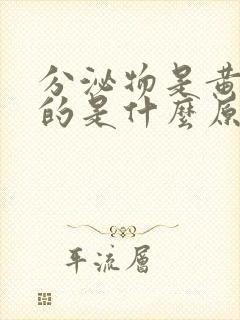 分泌物是黄
的是什麼原
平流層